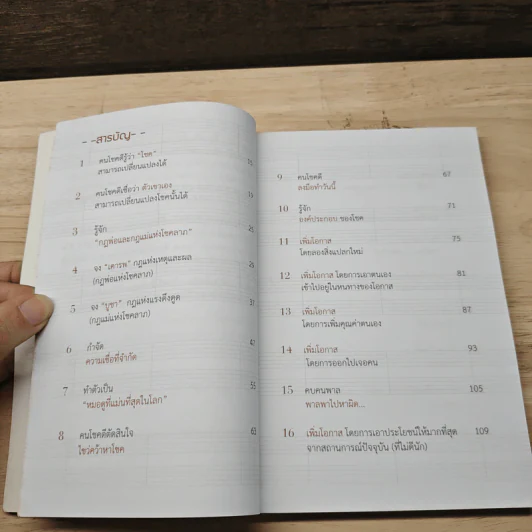 - -สารบัญ- -
1 คนโชคดีรู้ว่า "โชค"
สามารถเปลี่ยนแปลงได้
2 คนโชคดีเชื่อว่า ตัวเขาเอง
สามารถเปลี่ยนแปลงโชคนั้นได้
3 รู้จัก
"กฎพ่อและกฎแม่แห่งโชคลาภ"
4 จง "เคารพ" กฎแห่งเหตุและผล
(กฎพ่อแห่งโชคลาภ)
5 จง "บูชา" กฎแห่งแรงดึงดูด
(กฎแม่แห่งโชคลาภ)
6 กำจัด
ความเชื่อที่จำกัด
7 ทำตัวเป็น
"หมอดูที่แม่นที่สุดในโลก"
8 คนโชคดีตัดสินใจ 63
ไขว่คว้าหาโชค
9 คนโชคดี 67
ลงมือทำวันนี้
10 รู้จัก 71
องค์ประกอบ ของโชค
11 เพิ่มโอกาส 75
โดยลองสิ่งแปลกใหม่
12 เพิ่มโอกาส โดยการเอาตนเอง 81
เข้าไปอยู่ในหนทางของโอกาส
13 เพิ่มโอกาส 87
โดยการเพิ่มคุณค่าตนเอง
14 เพิ่มโอกาส 93
โดยการออกไปเจอคน
15 คบคนพาล 105
พาลพาไปหาผิด...
16 เพิ่มโอกาส โดยการเอาประโยชน์ให้มากที่สุด 109
จากสถานการณ์ปัจจุบัน (ที่ไม่ดีนัก)